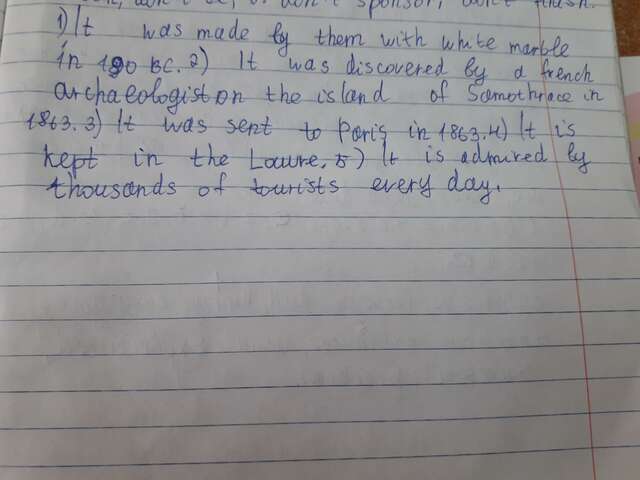 don't sponsor, don't
1) It was made by them with white marble
in 190 BC. 2) It was discovered by a french
archaeologist on the island of Samothrace in
1863. 3) It was sent to Paris in 1863. 4) It is
kept in the Louvre. 5) It is admired by
thousands of tourists every day.